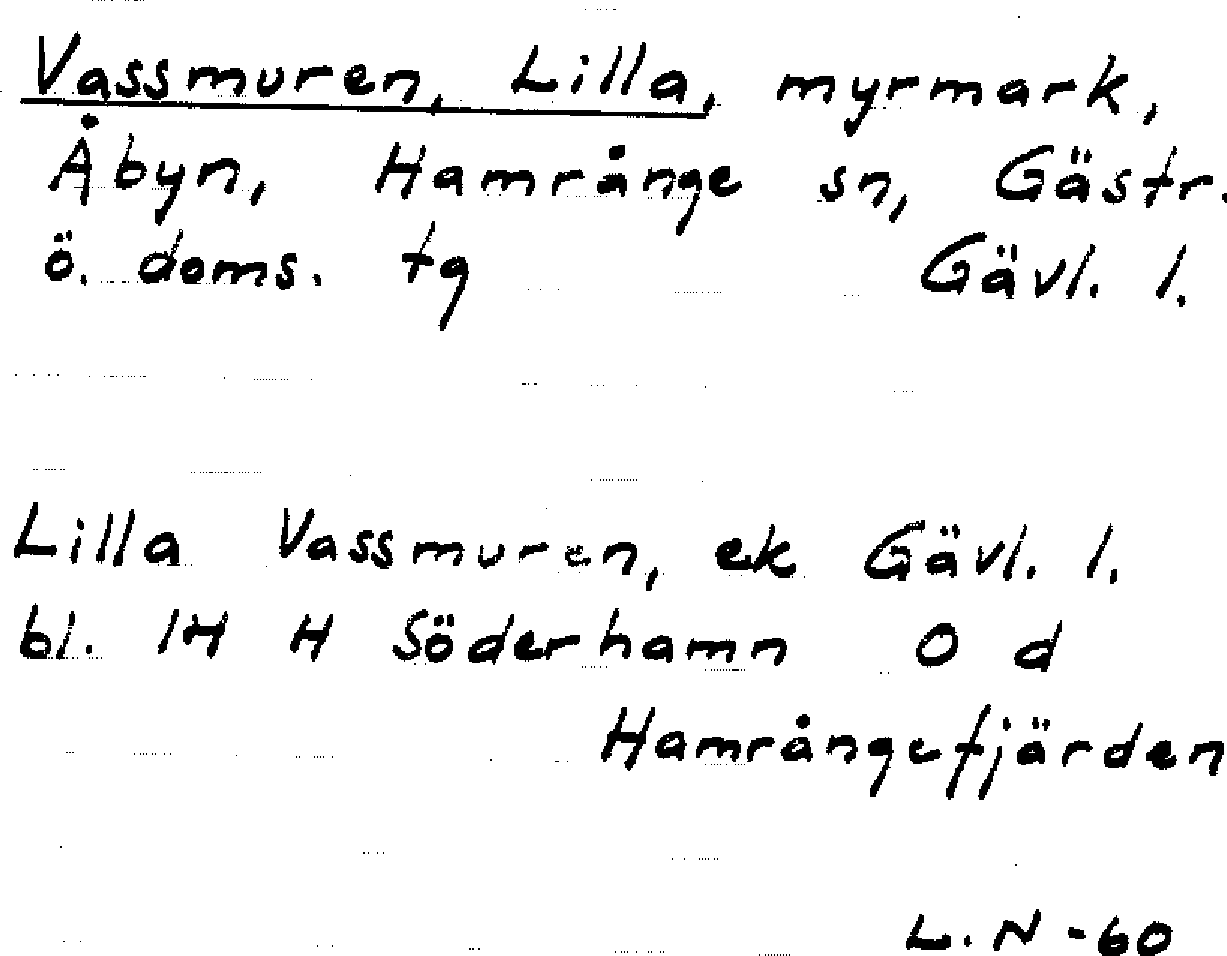 Vassmuren, Lilla, myrmark,
Åbyn, Hamrånge sn, Gästr.
ö. doms. tg Gävl. l.
Lilla Vassmuren, ek Gävl. l.
bl. 14 H Söderhamn 0 d
Hamrångefjärden
L.N -60